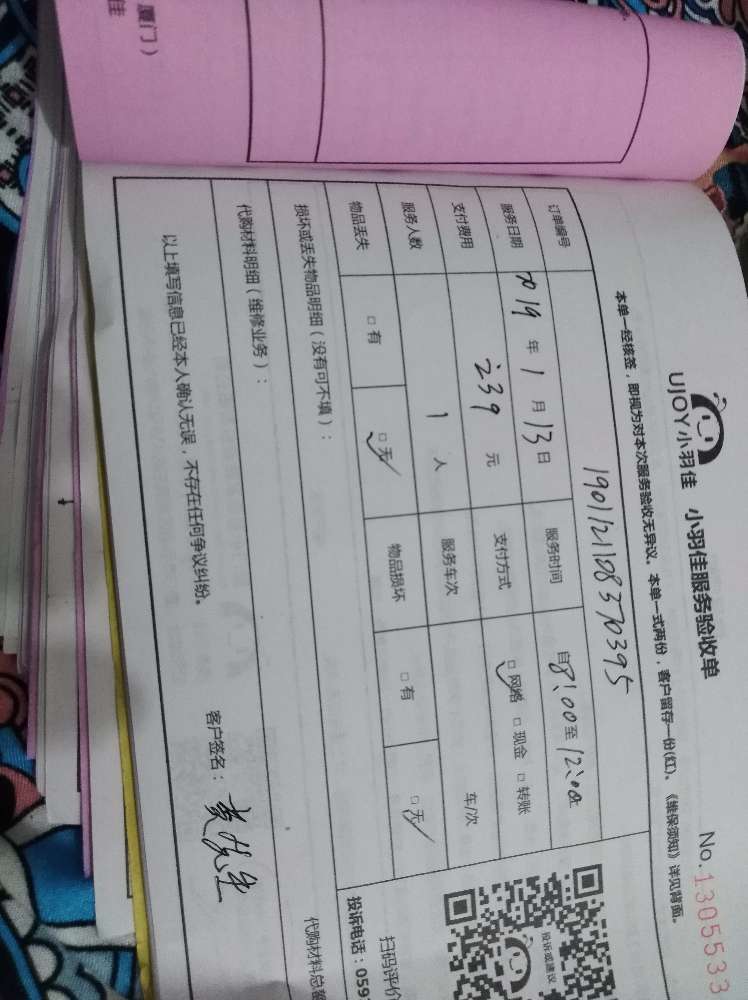 厦门）
佳
UJOY小羽佳 小羽佳服务验收单
No.1305533
本单一经核签，即视为对本次服务验收无异议。本单一式两份，客户留存一份(红)。《维保须知》详见背面。
订单编号 1901121108370395
服务日期 2019年1月13日 服务时间 自8:00至12:00
支付费用 239元 支付方式 □网络 □现金 □转账
服务人数 1人 服务车次 车/次
物品丢失 □有 □无 物品损坏 □有 □无
损坏或丢失物品明细（没有可不填）：
代购材料明细（维修业务）：
代购材料总
以上填写信息已经本人确认无误，不存在任何争议纠纷。
客户签名：黄先生
投诉或建议
扫码评价
投诉电话：059